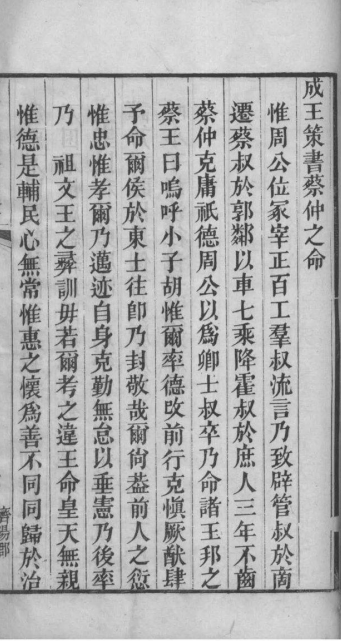 成王策書蔡仲之命
惟周公位冢宰正百工羣叔流言乃致辟管叔於商
遷蔡叔於郭鄰以車七乘降霍叔於庶人三年不齒
蔡仲克庸祇德周公以爲卿士叔卒乃命諸王邦之
蔡王曰嗚呼小子胡惟爾率德攺前行克愼厥猷肆
予命爾侯於東土往卽乃封敬哉爾尙葢前人之愆
惟忠惟孝爾乃邁迹自身克勤無怠以垂憲乃後率
乃 祖文王之彛訓毋若爾考之違王命皇天無親
惟德是輔民心無常惟惠之懷爲善不同同歸於治